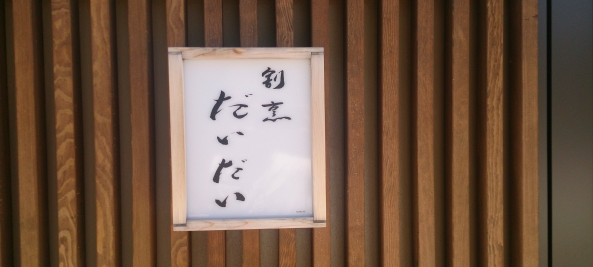 割烹
だいだい